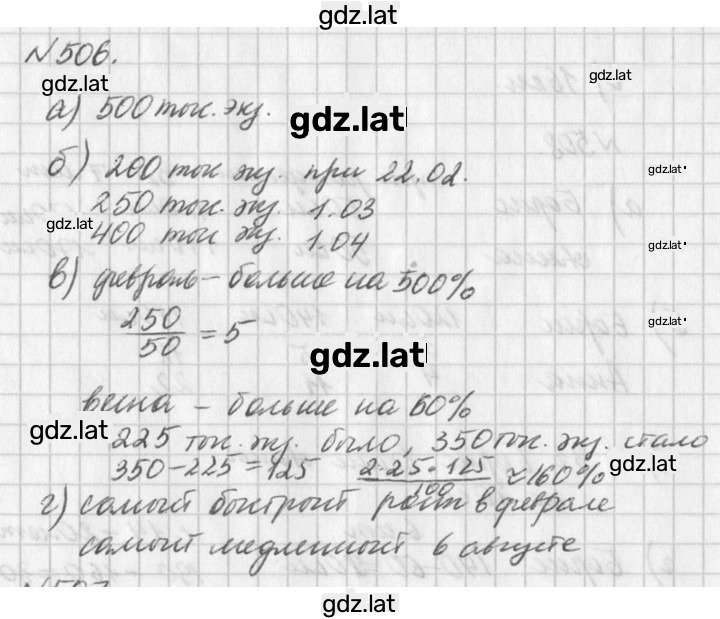 gdz.lat
№506.
gdz.lat gdz.lat
а) 500 тыс. экз.
gdz.lat
б) 200 тыс экз. при 22.02.
gdz.lat
250 тыс. экз. 1.03
gdz.lat
400 тыс экз. 1.04
gdz.lat
в) февраль – больше на 500%
250/50 = 5
gdz.lat
gdz.lat
весна – больше на 60%
gdz.lat
225 тыс. экз. было, 350 тыс. экз. стало
350-225=125 2·25·125/100 ≈160%
gdz.lat
г) самый быстрый рост в феврале
самый медленный в августе
№507
gdz.lat